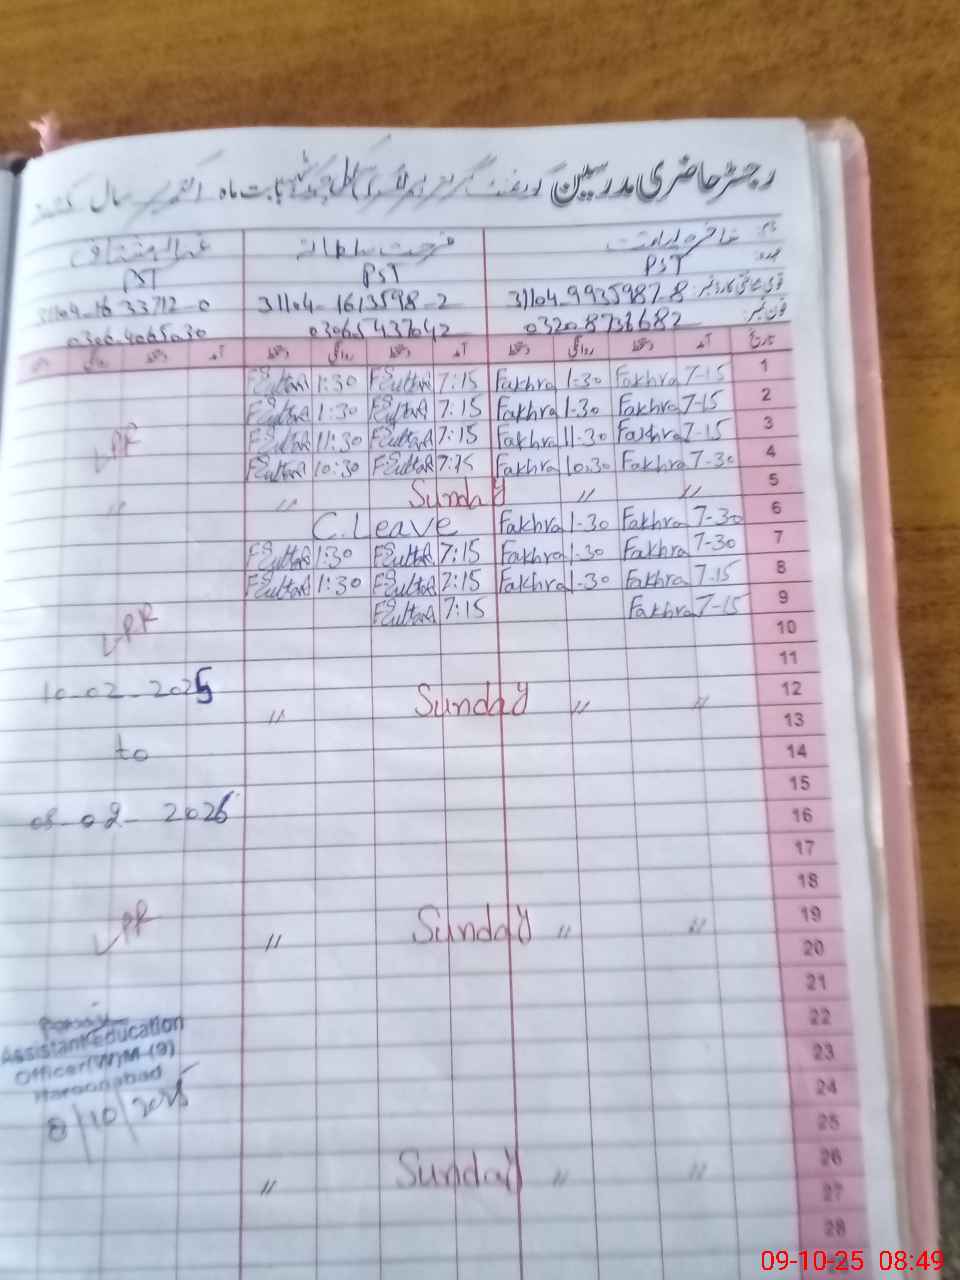 رجسٹر حاضری مدرسین گورنمنٹ گرلز بابت ماہ اکتوبر سال
نام فاخرہ فرحت سلطانہ
عہدہ PST PST PST
31104-9935987-8 31104-1613598-2 31104-1633712-0
فون نمبر 03065437042 03064065030
تاریخ آمد دستخط روانگی دستخط آمد دستخط روانگی دستخط آمد دستخط روانگی دستخط
1 7-15 Fakhra 1-30 Fakhra 7:15 FSultana 1:30 FSultana
2 7-15 Fakhra 1-30 Fakhra 7:15 FSultana 1:30 FSultana
3 7-15 Fakhra 11-30 Fakhra 7:15 FSultana 11:30 FSultana
4 7-30 Fakhra 10:30 Fakhra 7:15 FSultana 10:30 FSultana
5 〃 〃 Sunday 〃 〃
6 7-30 Fakhra 1-30 Fakhra C.Leave
7 7-30 Fakhra 1-30 Fakhra 7:15 FSultana 1:30 FSultana
8 7-15 Fakhra 1-30 Fakhra 7:15 FSultana 1:30 FSultana
9 7-15 Fakhra 7:15 FSultana
10
11
12 〃 〃 Sunday 〃 10-02-2025
13
14 to
15
16 08-02-2026
17
18
19 〃 〃 Sunday 〃
20
21
22
23
24
25
26 〃 〃 Sunday 〃
27
28
Assistant Education
Officer (W) M-(9)
Haroonabad
8/10/2025
09-10-25 08:49